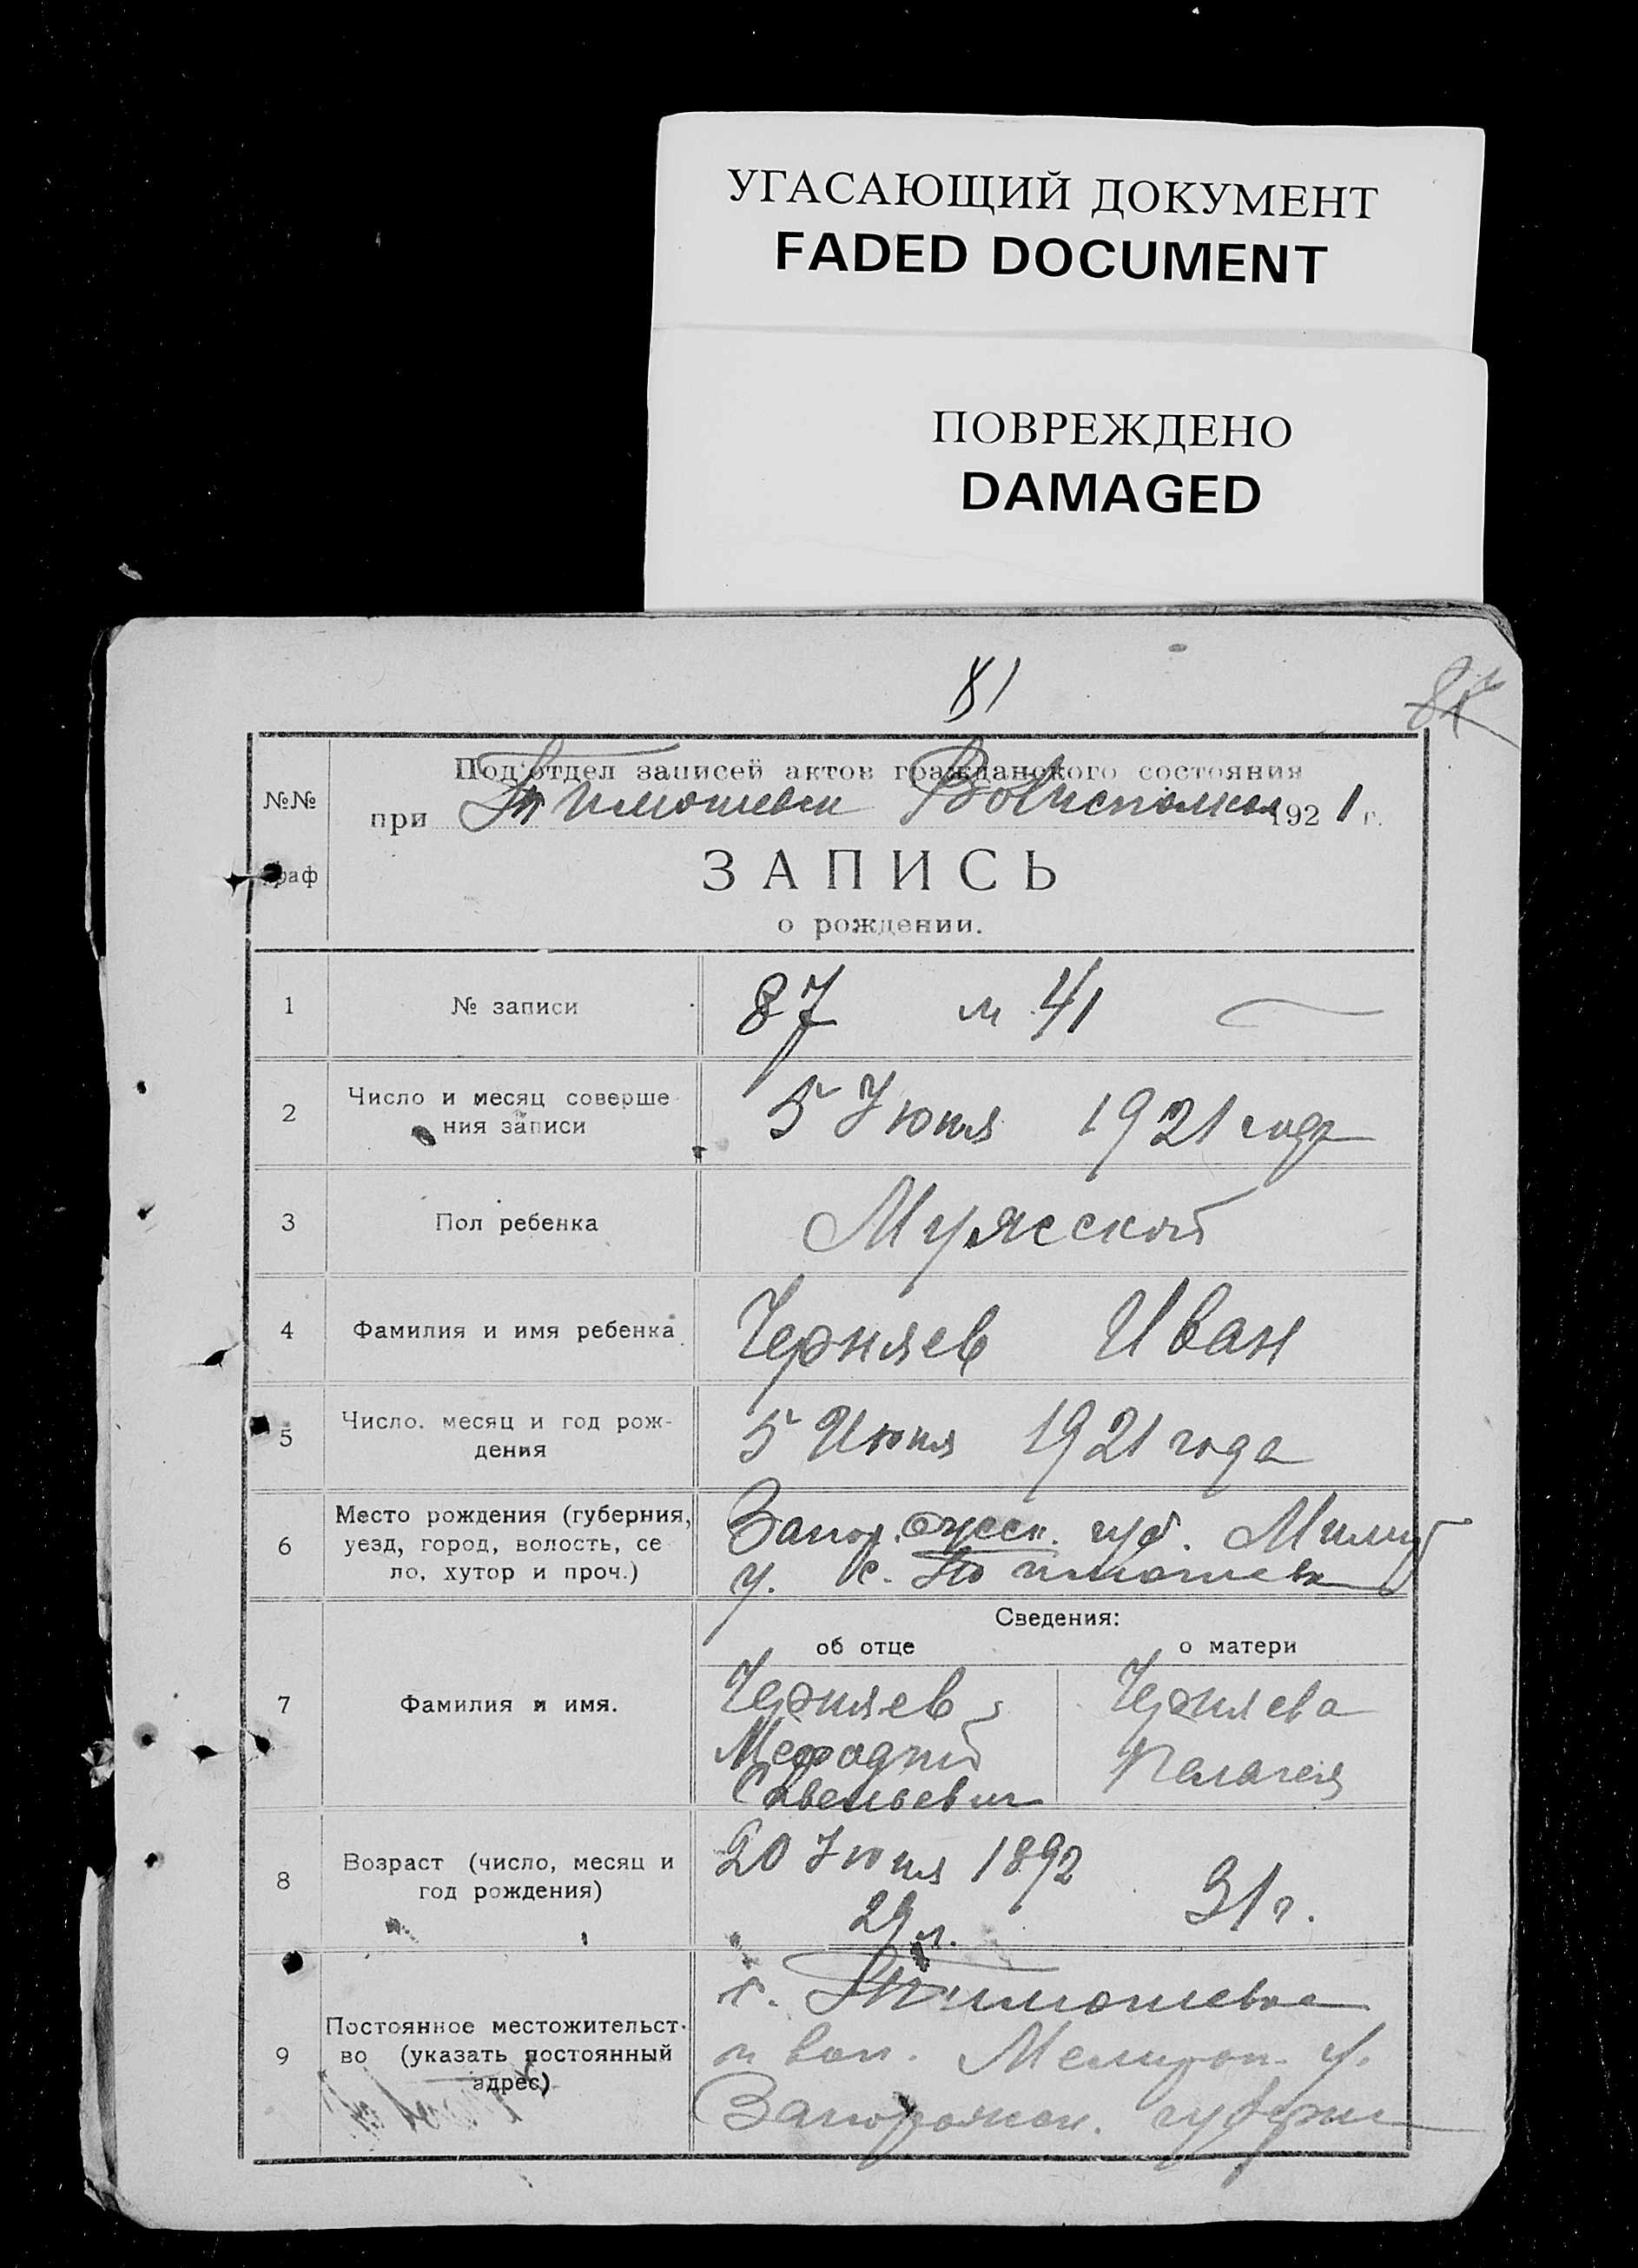 УГАСАЮЩИЙ ДОКУМЕНТ
FADED DOCUMENT
ПОВРЕЖДЕНО
DAMAGED
81
№№
граф
Под'отдел записей актов гражданского состояния
при Тимошевск Волисполкоме 1921 г.
ЗАПИСЬ
о рождении.
1 № записи 87 м 41
2 Число и месяц соверше-
ния записи
5 Июня 1921 года
3 Пол ребенка Мужской
4 Фамилия и имя ребенка Черняев Иван
5 Число. месяц и год рож-
дения
5 Июня 1921 года
6 Место рождения (губерния,
уезд, город, волость, се
ло, хутор и проч.)
Запор. губ.
у. с. Тимошевка
Сведения:
об отце о матери
7 Фамилия и имя.
Черняев
Мефодий
Савельевич
Черняева
Пелагея
8 Возраст (число, месяц и
год рождения)
20 Июня 1892
29 л.
31 г.
9 Постоянное местожительст-
во (указать постоянный
адрес)
с. Тимошевка
п вол. Мелитоп. у.
Запорожск. губерни